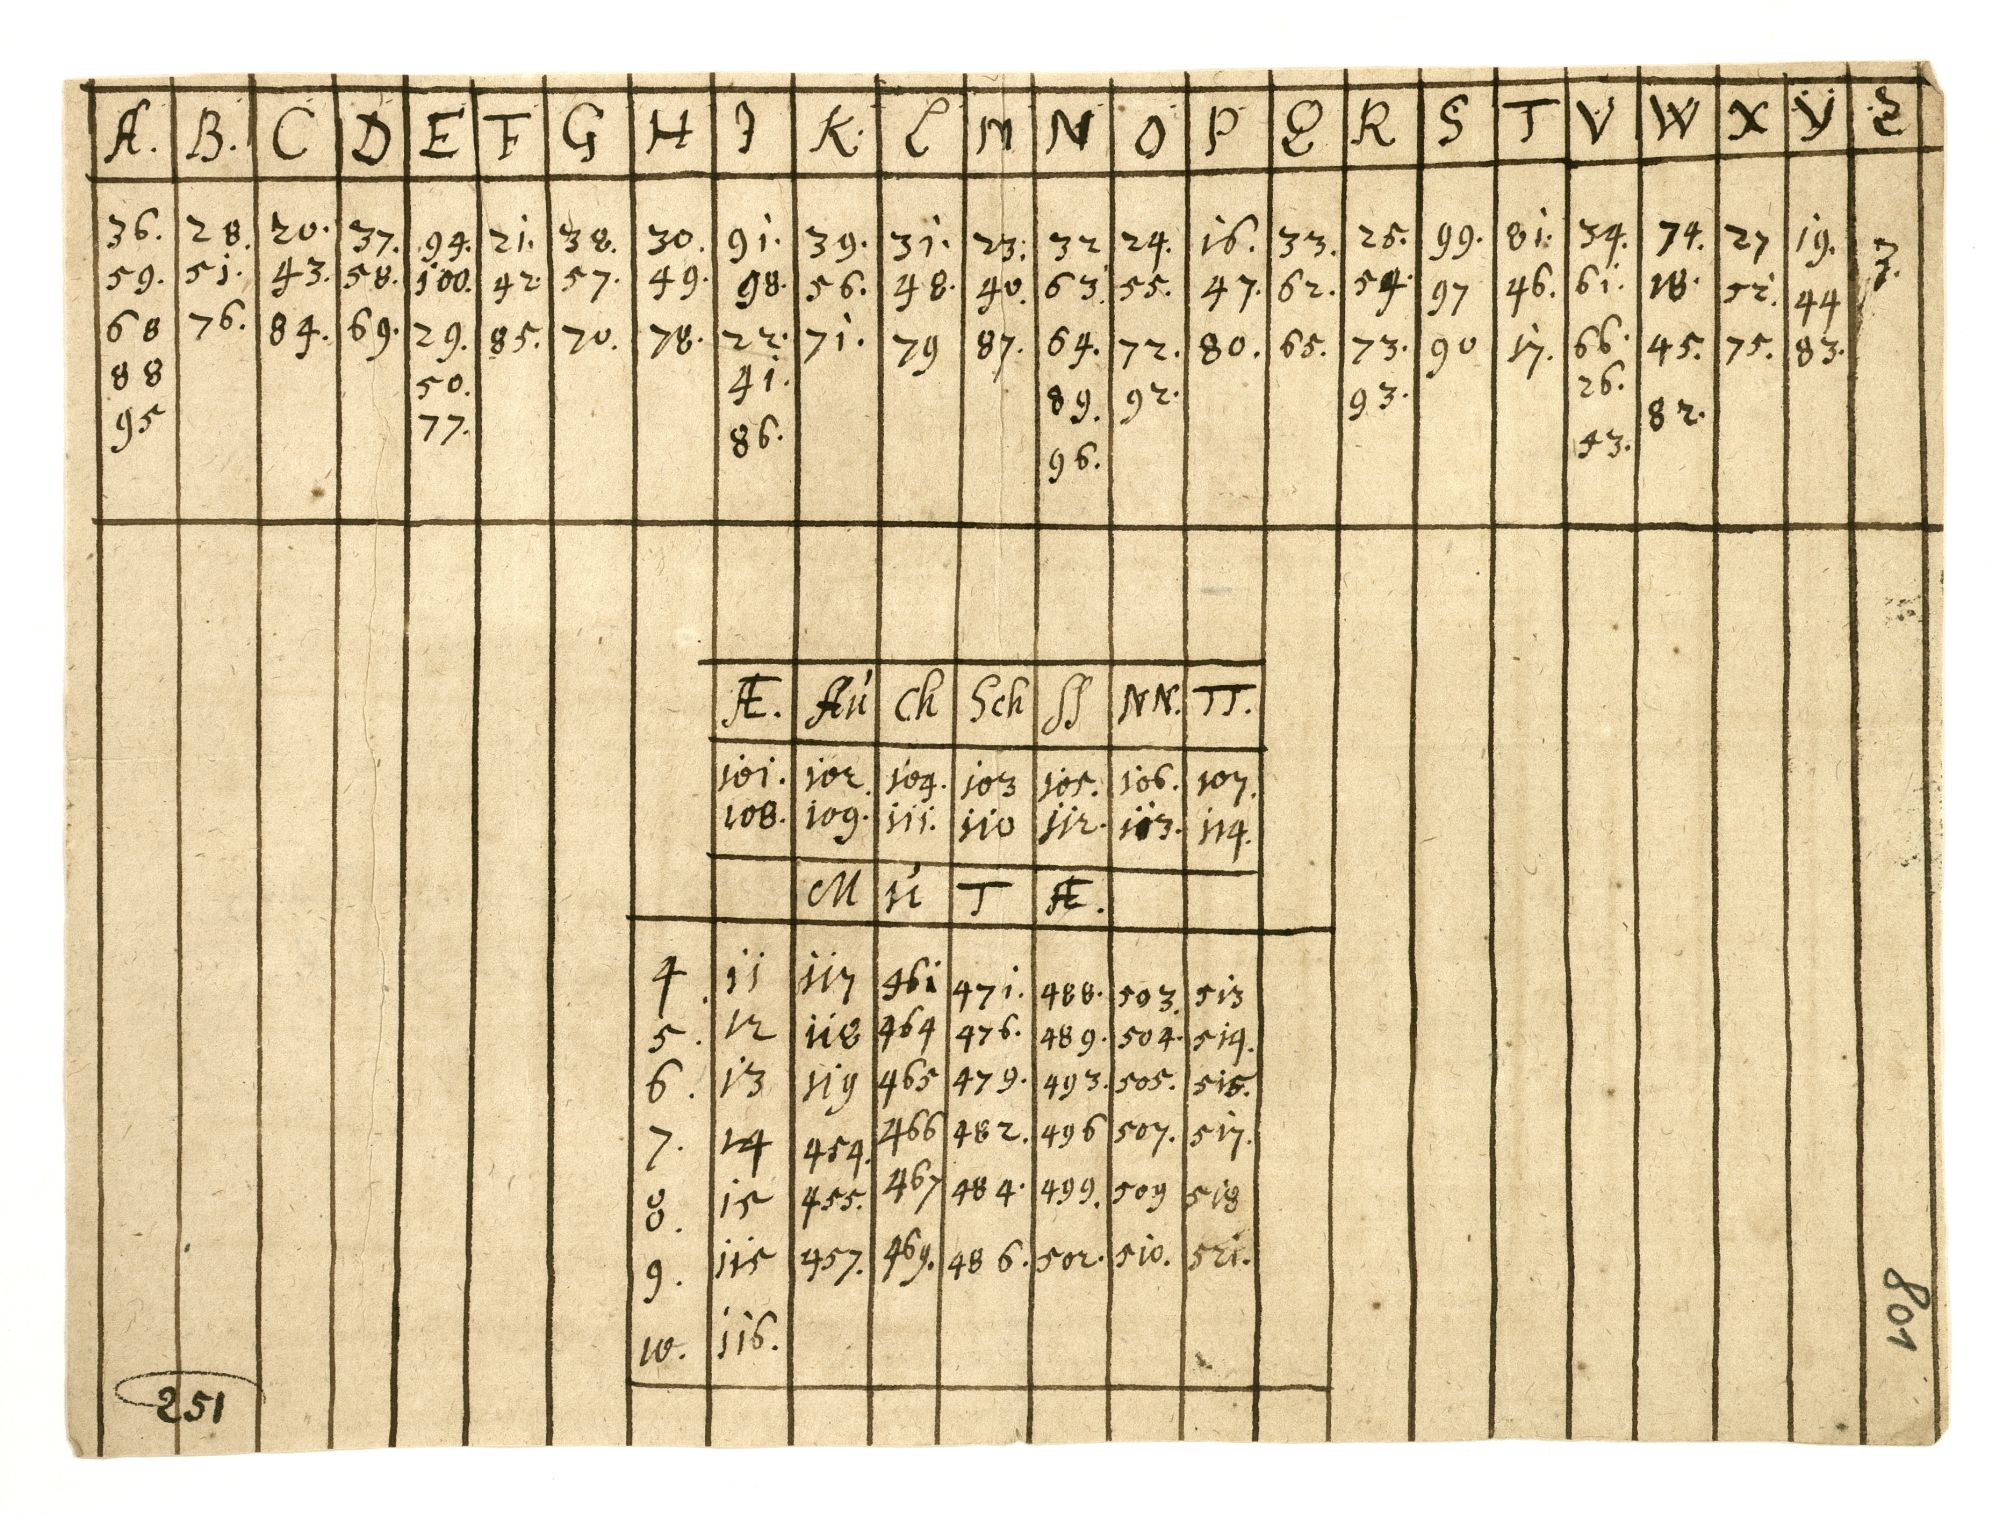 A. B. C D E F G H I K. L M N O P Q R S T V W X Ÿ Z
36. 28. 20. 37. 94. 21. 38. 30. 91. 39. 31. 23. 32 24. 16. 33. 25. 99. 81. 34. 74. 27 19.
59. 51. 43. 58. 100. 42 57. 49. 98. 56. 48. 40. 63. 55. 47. 62. 54. 97 46. 61. 18. 52. 44
68 76. 84. 69. 29. 85. 70. 78. 22. 71. 79 87. 64. 72. 80. 65. 73. 90 17. 66. 45. 75. 83.
88 50. 41. 89. 92. 93. 26. 82.
95 77. 86. 96. 43.
Æ. Aú Ch Sch SS NN. TT.
101. 102. 104. 103 105. 106. 107.
108. 109. 111. 110 112. 113. 114.
M ú T Æ.
4. 11 117 461 471. 488. 503. 513
5. 12 118 464 476. 489. 504. 514.
6. 13 119 465 479. 493. 505. 515.
7. 14 454. 466 482. 496 507. 517.
8. 15 455. 467 484. 499. 509 518
9. 115 457. 469. 486. 502. 510. 521.
10. 116.
251
801